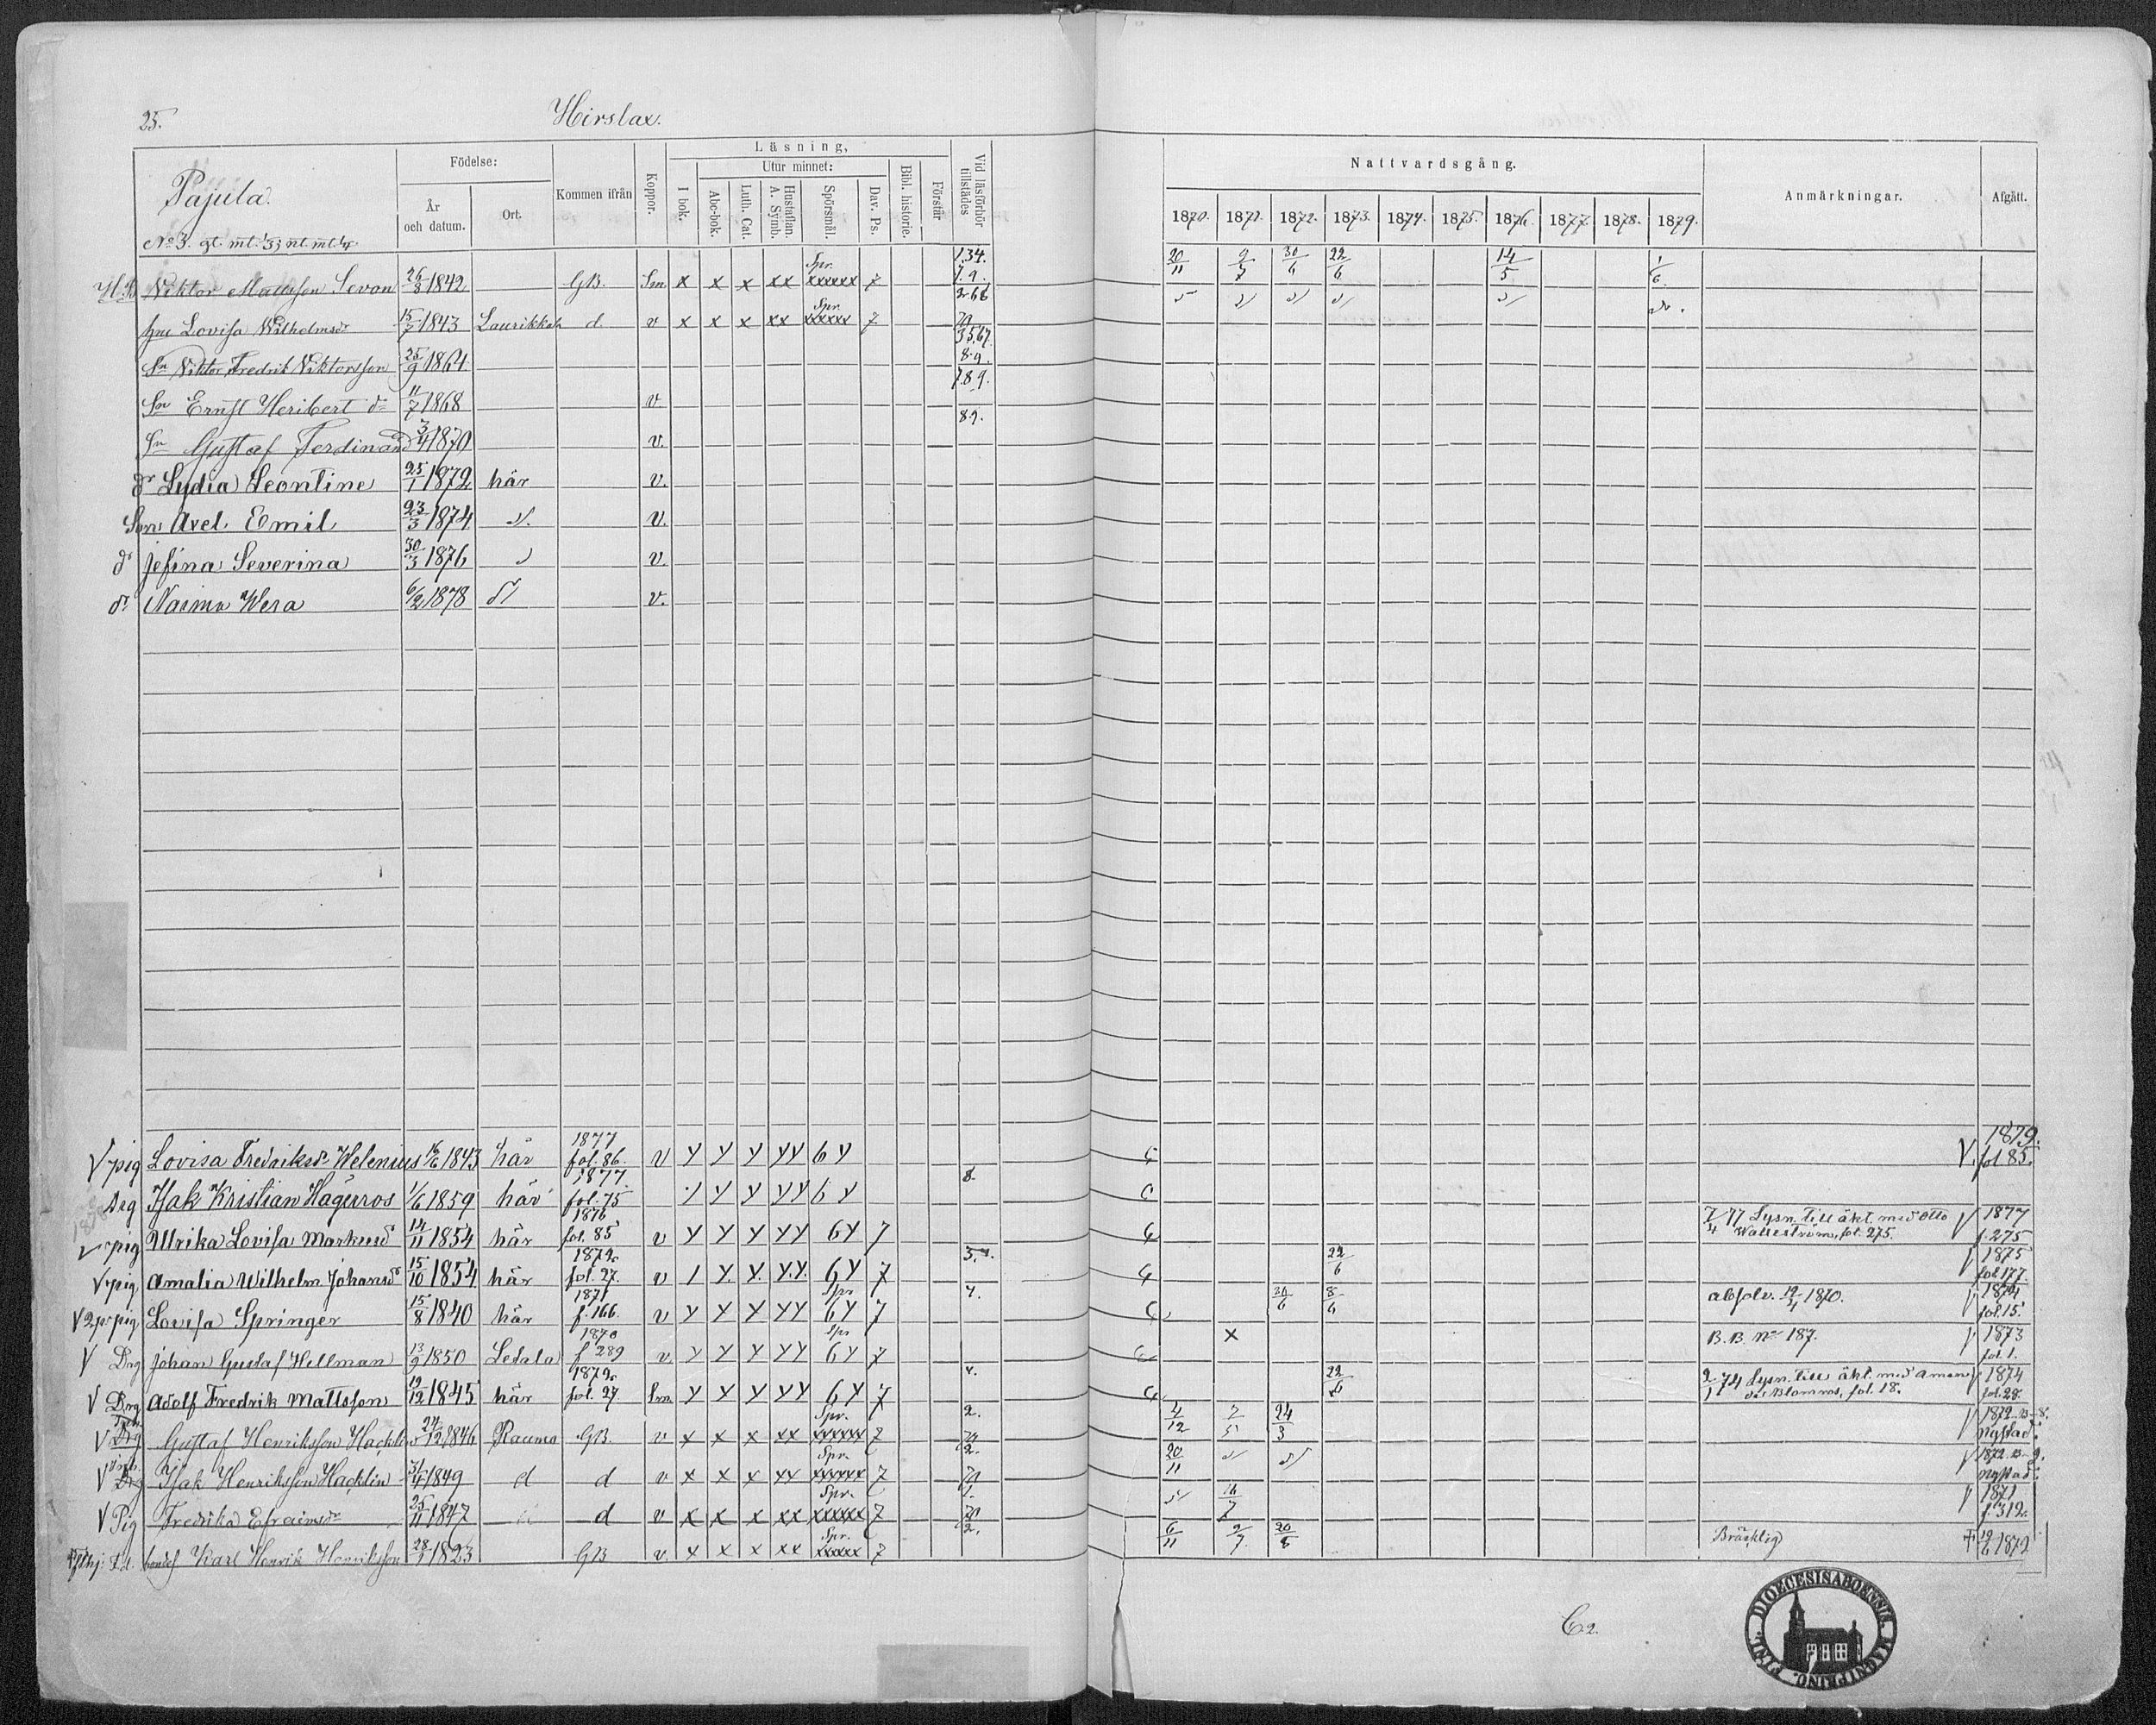 25. Hirslax.
Pajula.
No 3. gt. mt. 1/3; nt. mt. 1/4.
Födelse:
År och datum.
Ort.
Kommen ifrån
Koppor.
Läsning,
I bok.
Utur minnet:
Abc-bok.
Luth. Cat.
Hustaflan. A. Symb.
Spörsmål.
Dav. Ps.
Bibl. historie.
Förstår
Vid läsförhör tillstädes
Nattvardsgång.
1870. 1871. 1872. 1873. 1874. 1875. 1876. 1877. 1878. 1879.
Anmärkningar.
Afgått.
Viktor Mattsson Sevon 26/8 1842 GB. Svn x x x xx Spr. xxxxxx 7 1.3.4. 7.9. 20/11 9/7 30/6 22/6 14/5 1/6
hu Lovisa Wilhelmsdr 15/7 1843 Laurikkala d. v x x x xx Spr. xxxxx 7
Sn Viktor Fredrik Viktorsson 25/9 1864 8.9.
Sn Ernst Heribert do 11/7 1868 v. 7.8.9.
Sn Gustaf Ferdinand 3/4 1870 v. 8.9.
dr Lydia Leontine 25/1 1872 här v.
Son Axel Emil 23/3 1874 v.
dr Jefina Severina 30/3 1876 v.
dr Naima Wera 6/2 1878 v.
V pig Lovisa Fredriksdr Helenius 1843 här 1877 fol. 86. v y y y yy 6 y V. 1879. fol 85.
Drg Isak Kristian Hagūros 1/6 1859 här 1877 fol. 75 y y y yy 6 y 8.
1878 pig Ulrika Lovisa Markusd 14/11 1854 här 1876 fol. 85 v y y y yy 6 y 7 7/4 77 Lysn. till äkt. med Otto Walleström, fol. 275. V 1877 f. 275
V pig Amalia Wilhelm. Johansdr 15/10 1854 här 1872 fol. 27. v y y yy 6 y 7 22/6 V 1875 fol 177.
V pig Lovisa Springer 15/8 1840 här 1871 f. 166. v y y y yy Spr 6 y 7 4. 30/6 8/6 absolv. 1870. V 1874 fol 15.
V Drg Johan Gustaf Hellman 13/9 1850 Letala 1870 f 289 v y y y yy Spr 6 y 7 x B. B. No 187. V 1873 fol. 1.
V Drg Adolf Fredrik Mattsson 19/12 1845 här 1872 fol. 27 Svn. y y y yy 6 y 7 4. 22/6 74 Lysn. till äkt. med Aman da Blomros, fol. 18. 1874 fol. 28.
V Drg Gustaf Henriksson Hacklin 24/12 1846 Raumo GB. v x x x xx Spr. xxxxxx 7 2. 4/12 24/3 V 1872 Nystad.
V Drg Isak Henriksson Hacklin 1849 d d v x x x xx Spr. xxxxxx 7 2. 20/11 V 1872 Nystad.
V Pig Fredrika Efraimsdr 25/11 1847 d v x x x xx Spr. xxxxxx 7 1. 16/7 V 1871 f. 312.
bondes Karl Henrik Henriksson 28/1 1823 GB v. x x x xx Spr. xxxxx 7 2. 6/11 9/7 20/8 Bräcklig † 19/6 1872
C 2.
DIOECESIS ABOENSIS MAGNI PRINC. FINL.